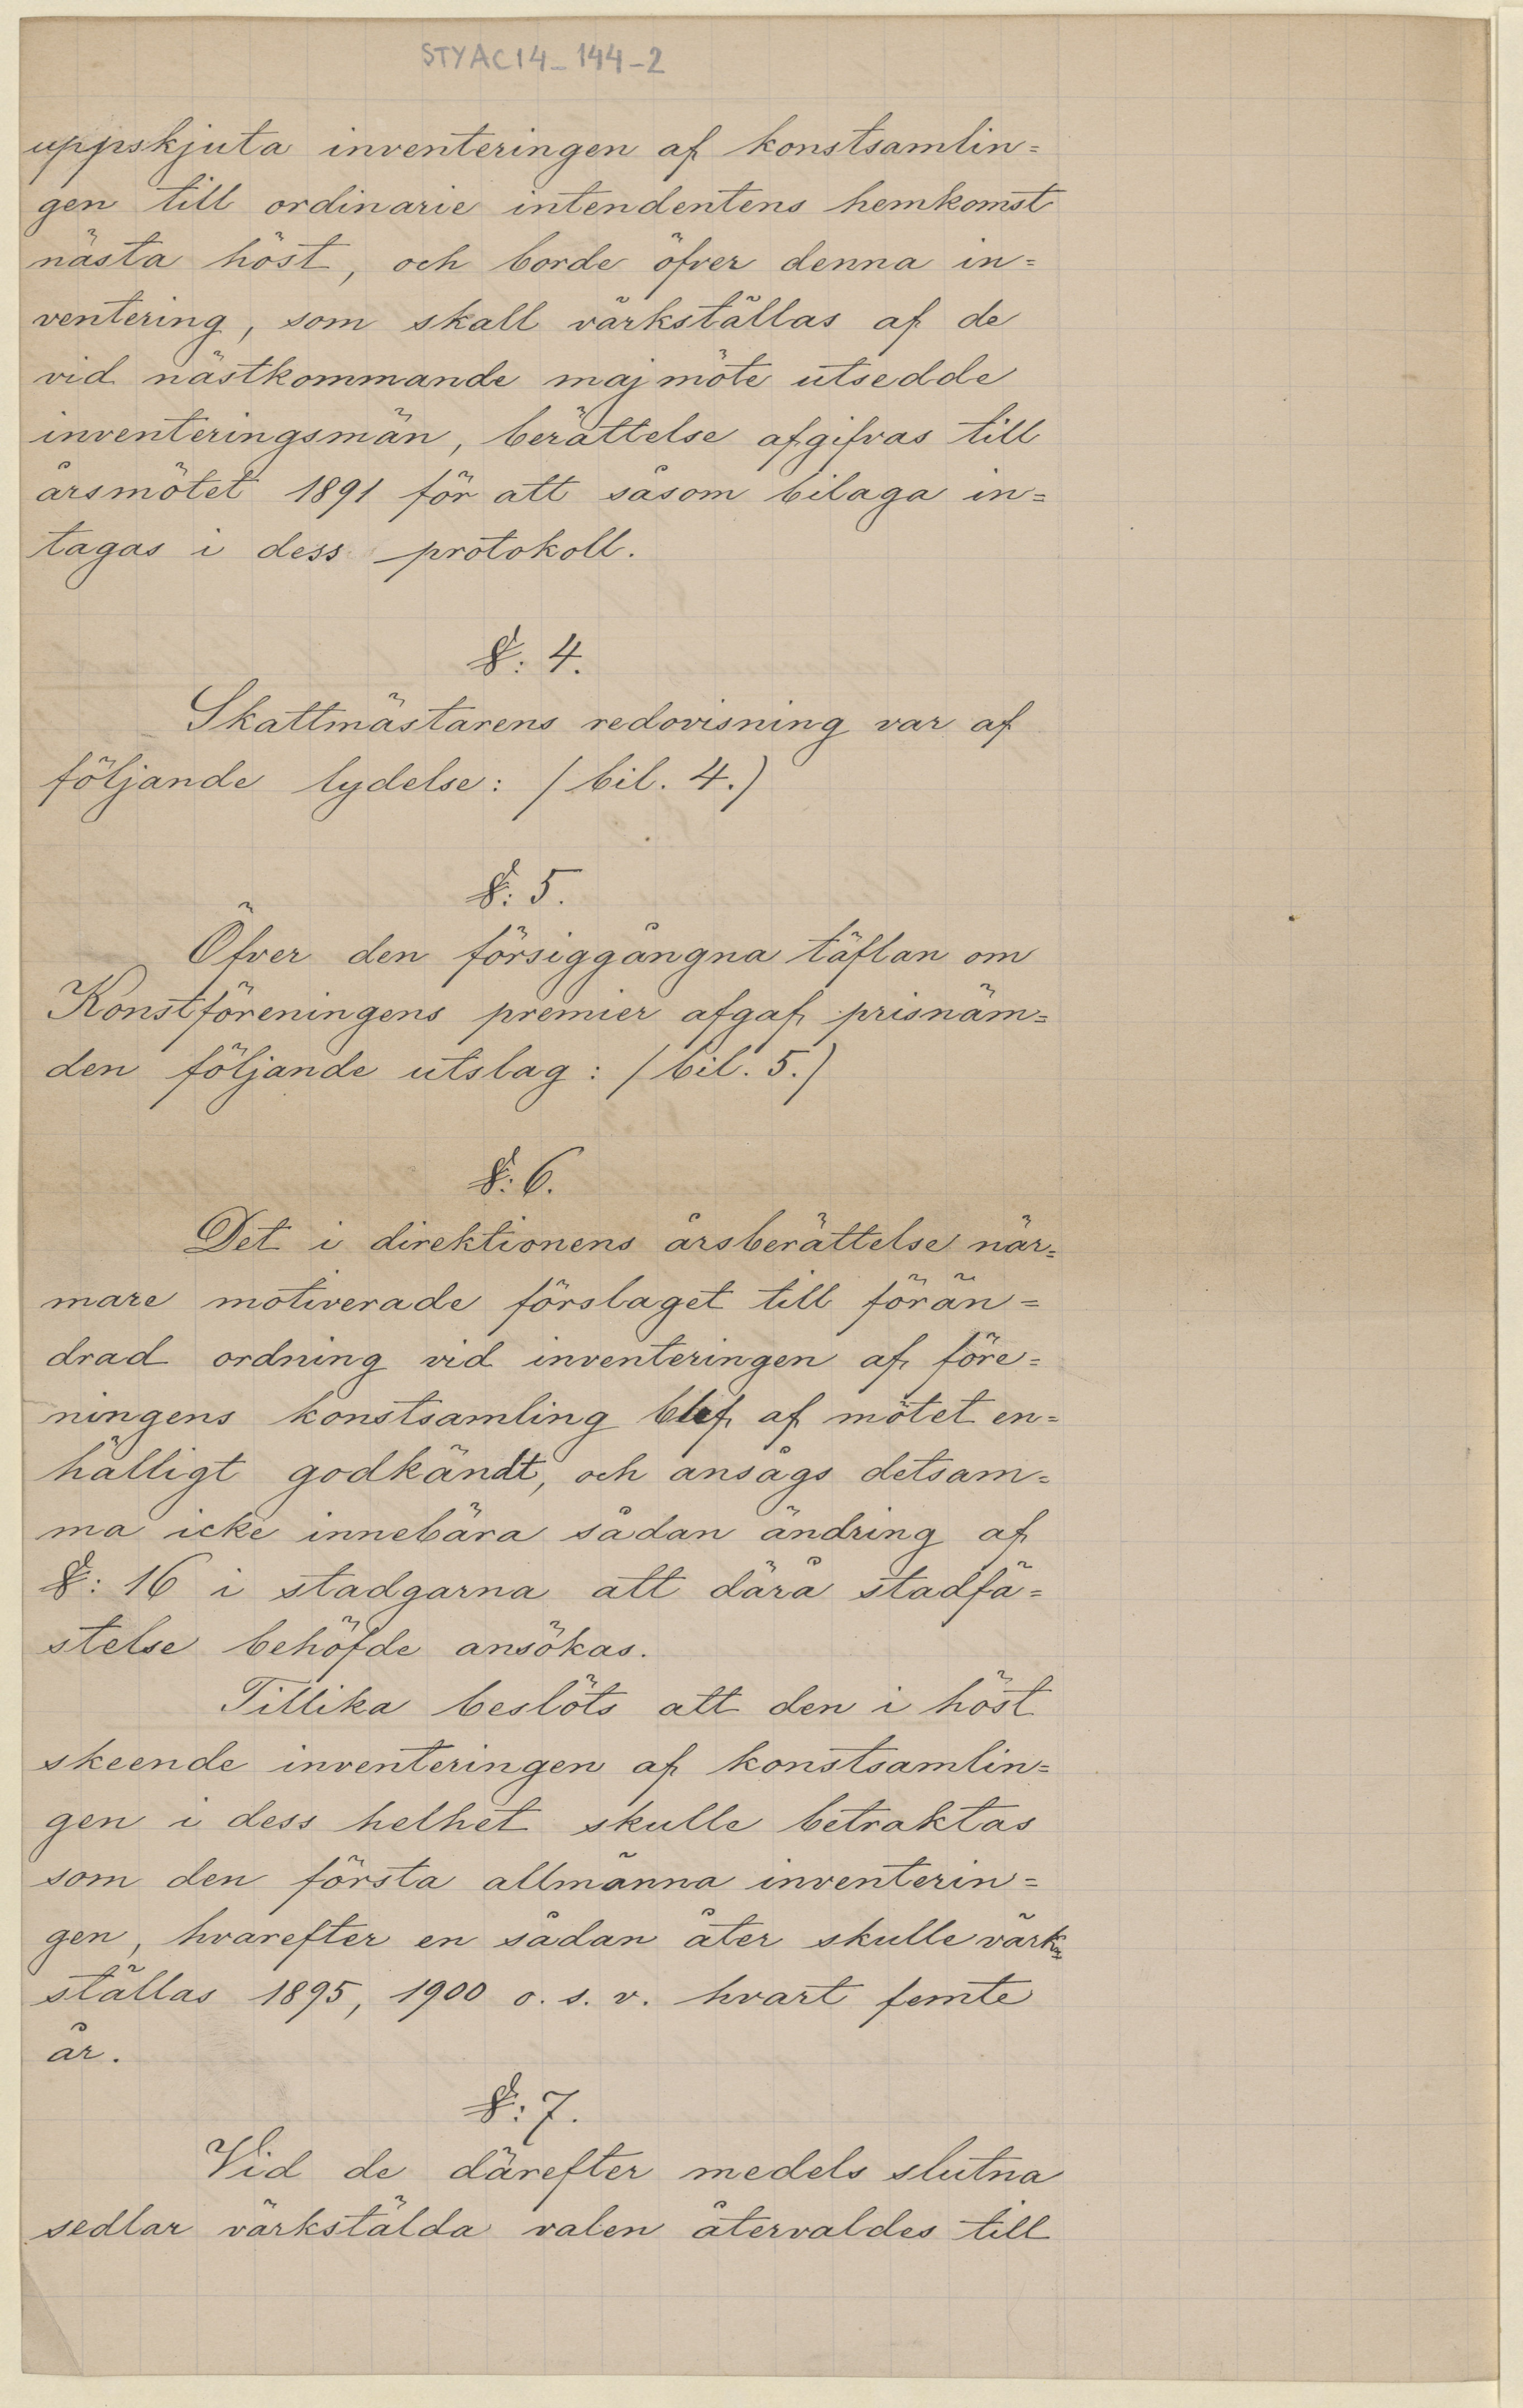 STYAC14_144-2
uppskjuta inventeringen af konstsamlin=
gen till ordinarie intendentens hemkomst
nästa höst, och borde öfver denna in=
ventering, som skall värkställas af de
vid nästkommande majmöte utsedde
inventeringsmän, berättelse afgifvas till
årsmötet 1891 för att såsom bilaga in=
tagas i dess protokoll.
§: 4.
Skattmästarens redovisning var af
följande lydelse: /bil. 4.)
§: 5.
Öfver den försiggångna täflan om
Konstföreningens premier afgaf prisnäm=
den följande utslag: /bil. 5.)
§: 6.
Det i direktionens årsberättelse när=
mare motiverade förslaget till förän=
drad ordning vid inventeringen af före=
ningens konstsamling blef af mötet en=
hälligt godkändt, och ansågs detsam=
ma icke innebära sådan ändring af
§: 16 i stadgarna att därå stadfä=
stelse behöfde ansökas.
Tillika beslöts att den i höst
skeende inventeringen af konstsamlin=
gen i dess helhet skulle betraktas
som den första allmänna inventerin=
gen, hvarefter en sådan åter skulle värk=
ställas 1895, 1900 o. s. v. hvart femte
år.
§: 7.
Vid de därefter medels slutna
sedlar värkstälda valen återvaldes till